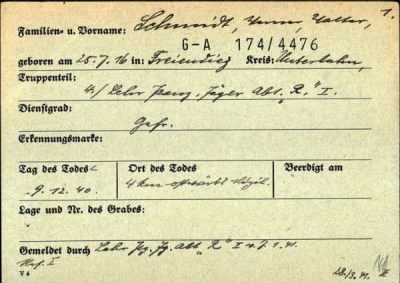 1.
Familien- u. Vorname: Schmidt, Werner, Walter,
G-A 174/4476
geboren am 25.7.16 in: Kreis: Unterlahn,
Truppenteil:
4./ Lehr Panz. Jäger Abt. „R." I.
Dienstgrad:
Gefr.
Erkennungsmarke:
Tag des Todes Ort des Todes Beerdigt am
9.12.40. 4 km
Lage und Nr. des Grabes:
Gemeldet durch Lehr Pz. Jg. Abt. „R" I v. 7.1.41.